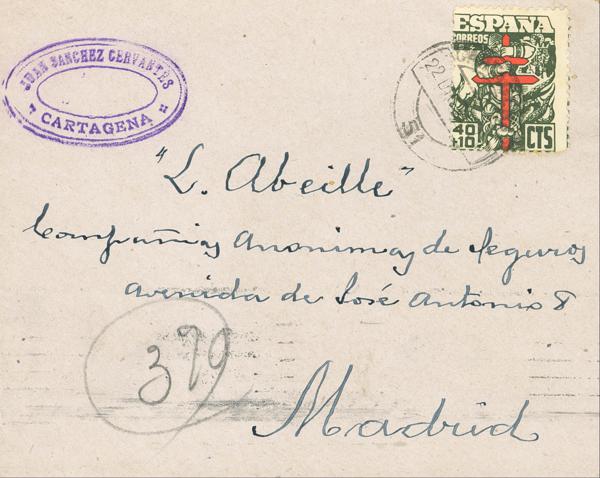 JUAN SANCHEZ CERVANTES
CARTAGENA
ESPAÑA
CORREOS
40
+10
CTS
22
51
"L. Abeille"
Compañias Anonimas de Seguros
avenida de José Antonio 8
379
Madrid